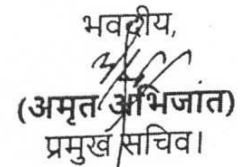 भवदीय,
(अमृत अभिजात)
प्रमुख सचिव।